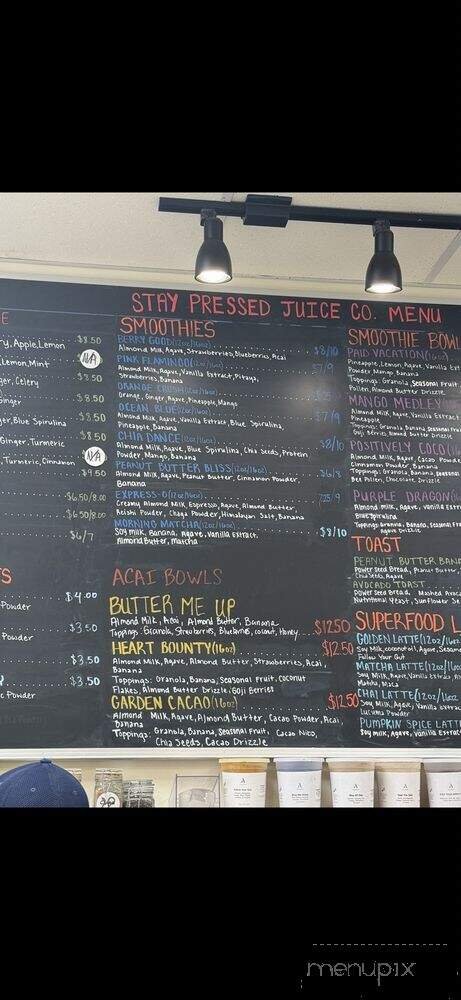 STAY PRESSED JUICE CO. MENU
ry, Apple, Lemon $8.50
Lemon, Mint N/A
ger, Celery $8.50
Ginger $8.50
er, Blue Spirulina $8.50
Ginger, Turmeric $8.50
Turmeric, Cinnamon N/A
$9.50
$6.50/8.00
$6.50/8.00
$6/7
TS
$4.00
Powder
$3.50
Powder
$3.50
$3.50
c Powder
SMOOTHIES
BERRY GOOD(12oz/16oz) $8/10
Almond Milk, Agave, Strawberries, Blueberries, Acai
PINK FLAMINGO(12oz/16oz) $7/9
Almond Milk, Agave, Vanilla Extract, Pitaya,
Strawberries, Banana
ORANGE CRUSH(12oz/16oz)
Orange, Ginger, Agave, Pineapple, Mango
OCEAN BLUE(12oz/16oz) $7/9
Almond Milk, Agave, Vanilla Extract, Blue Spirulina,
Pineapple, Banana
CHIA DANCE(12oz/16oz) $8/10
Almond Milk, Agave, Blue Spirulina, Chia Seeds, Protein
Powder, Mango, Banana
PEANUT BUTTER BLISS(12oz/16oz) $6/8
Almond Milk, Agave, Peanut Butter, Cinnamon Powder,
Banana
EXPRESS-O(12oz/16oz) 7.25/9
Creamy Almond Milk, Espresso, Agave, Almond Butter,
Reishi Powder, Chaga Powder, Himalayan Salt, Banana
MORNING MATCHA(12oz/16oz) $8/10
Soy Milk, Banana, Agave, Vanilla Extract,
Almond Butter, Matcha
ACAI BOWLS
BUTTER ME UP
Almond Milk, Acai, Almond Butter, Banana
Toppings: Granola, Strawberries, Blueberries, Coconut, Honey $12.50
HEART BOUNTY(16oz) $12.50
Almond Milk, Agave, Almond Butter, Strawberries, Acai,
Banana
Toppings: Granola, Banana, Seasonal Fruit, Coconut
Flakes, Almond Butter Drizzle, Goji Berries
GARDEN CACAO(16oz) $12.50
Almond Milk, Agave, Almond Butter, Cacao Powder, Acai,
Banana
Toppings: Granola, Banana, Seasonal Fruit, Cacao Nibs,
Chia Seeds, Cacao Drizzle
SMOOTHIE BOWL
PAID VACATION(16oz)
Pineapple, Lemon, Agave, Vanilla Ext
Powder, Mango, Banana
Toppings: Granola, Seasonal Fruit,
Pollen, Almond Butter Drizzle
MANGO MEDLEY
Almond Milk, Agave, Vanilla Extract
Pineapple, Mango
Toppings: Granola, Banana, Seasonal Fruit
Goji Berries, Almond Butter Drizzle
POSITIVELY COCO(16
Almond Milk, Agave, Cacao Powder
Cinnamon Powder, Banana
Toppings: Granola, Banana, Seasonal
Bee Pollen, Chocolate Drizzle
PURPLE DRAGON(16
Almond Milk, Agave, Vanilla Extra
Blue Spirulina
Toppings: Granola, Banana, Seasonal F
Agave Drizzle
TOAST
PEANUT BUTTER BANA
Power Seed Bread, Peanut Butter,
Chia Seeds, Agave
AVOCADO TOAST
Power Seed Bread, Mashed Avoca
Nutritional Yeast, Sunflower Se
SUPERFOOD L
GOLDEN LATTE(12oz/16oz
Soy Milk, Coconut Oil, Agave, Sesame
Follow Your Gut
MATCHA LATTE(12oz/16oz
Soy Milk, Agave, Vanilla Extract
Matcha, Maca
CHAI LATTE(12oz/16oz
Soy Milk, Agave, Vanilla Extract
Lucuma Powder
PUMPKIN SPICE LATTE
Soy Milk, Agave, Vanilla Extrac
menupix